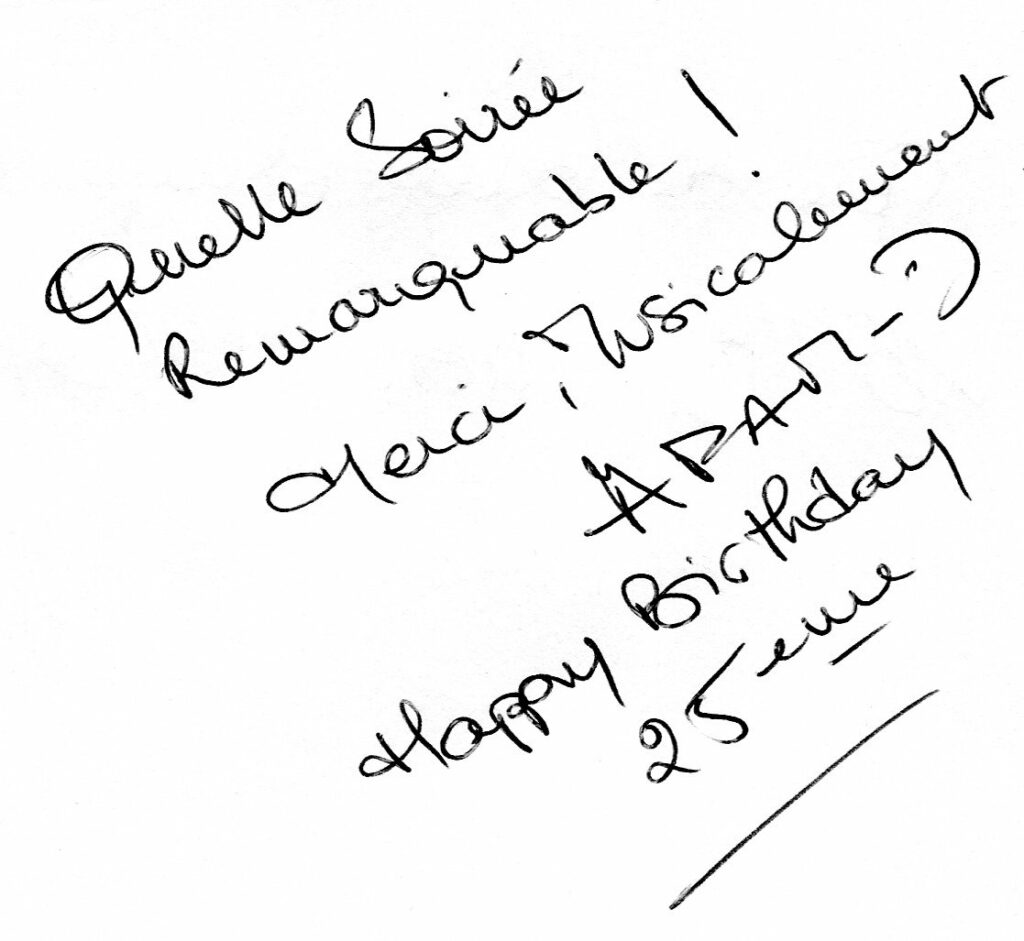 Quelle Soirée
Remarquable !
Merci, Musicalement
APAM-D
Happy Birthday
25eme